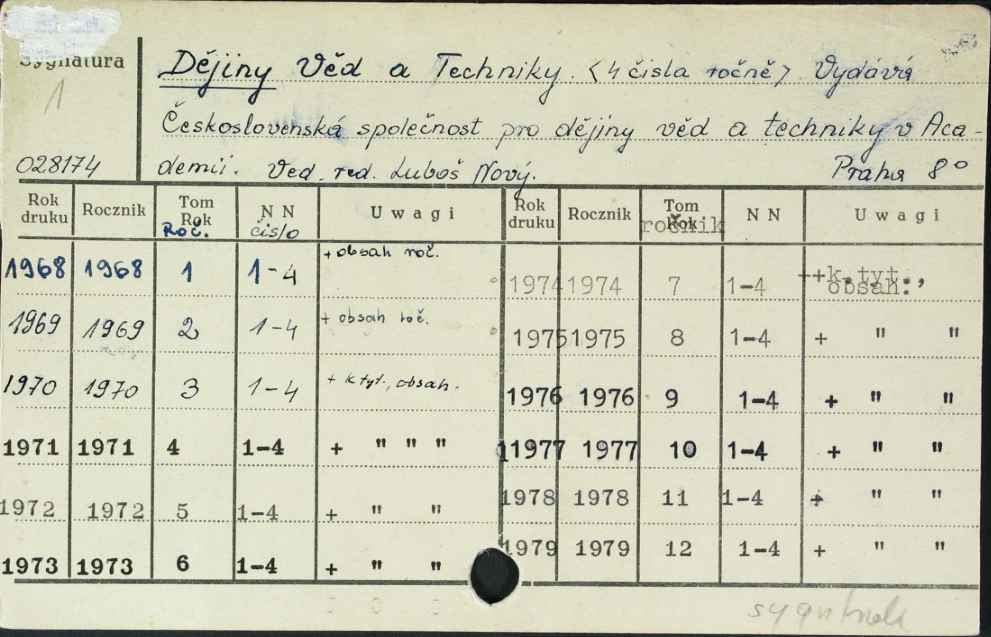 Sygnatura
1
028174
Dějiny Věd a Techniky. <4 čisla ročně> Vydává
Československá společnost pro dějiny věd a techniky v Aca-
demii. Ved. red. Luboš Nový. Praha 8°
Rok druku Rocznik Tom Rok Roč. N N čislo Uwagi Rok druku Rocznik Tom Rok ročnik N N Uwagi
1968 1968 1 1-4 + obsah roč. 1974 1974 7 1-4 ++k.tyt., obsah.
1969 1969 2 1-4 + obsah roč. 1975 1975 8 1-4 + " "
1970 1970 3 1-4 + k.tyt., obsah. 1976 1976 9 1-4 + " "
1971 1971 4 1-4 + " " " 11977 1977 10 1-4 + " "
1972 1972 5 1-4 + " " 1978 1978 11 1-4 + " "
1973 1973 6 1-4 + " " 1979 1979 12 1-4 + " "